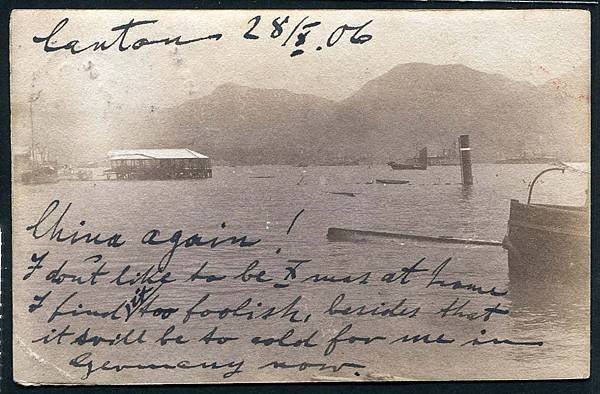 Canton 28/X.06
China again!
I don't like to be Xmas at home
I find it too foolish, besides that
it will be to cold for me in
Germany now.